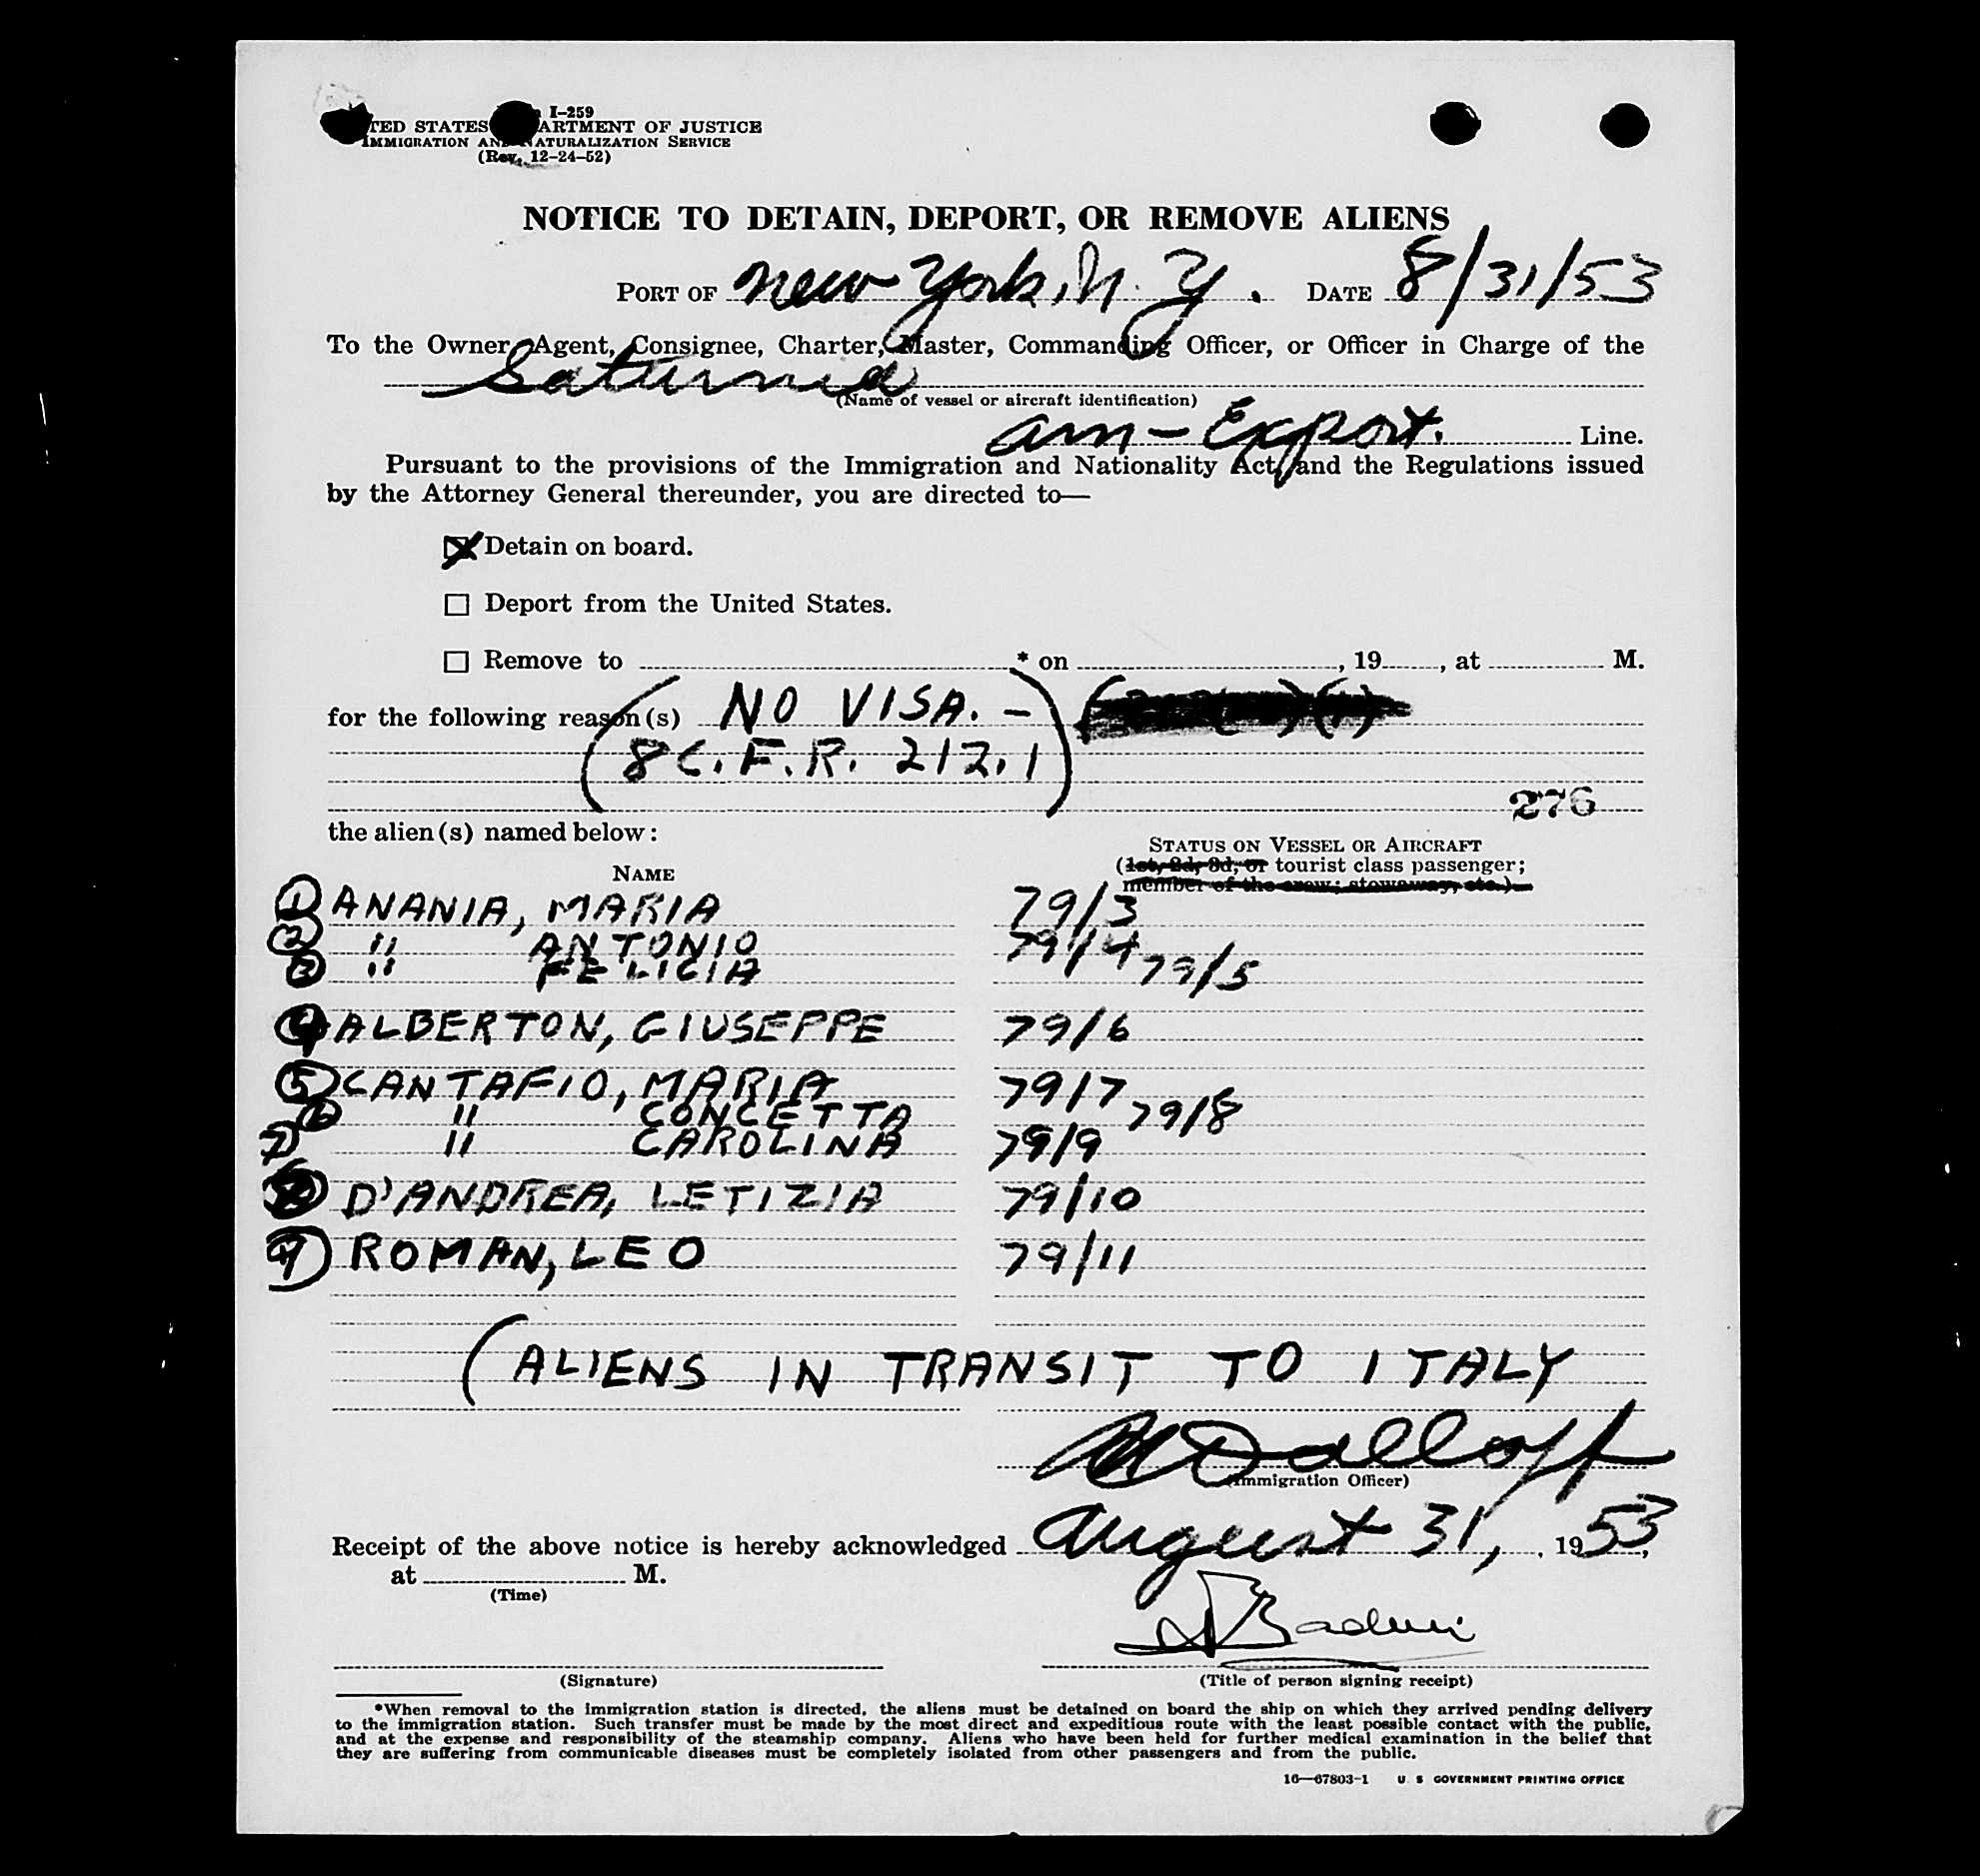 I-259
UNITED STATES DEPARTMENT OF JUSTICE
IMMIGRATION AND NATURALIZATION SERVICE
(Rev. 12-24-52)
NOTICE TO DETAIN, DEPORT, OR REMOVE ALIENS
PORT OF New York, N.Y. DATE 8/31/53
To the Owner, Agent, Consignee, Charter, Master, Commanding Officer, or Officer in Charge of the
Saturnia
(Name of vessel or aircraft identification)
Am-Export. Line.
Pursuant to the provisions of the Immigration and Nationality Act, and the Regulations issued
by the Attorney General thereunder, you are directed to—
Detain on board.
Deport from the United States.
Remove to * on , 19 , at M.
for the following reason(s) (NO VISA. -
8 C.F.R. 212.1)
276
the alien(s) named below:
STATUS ON VESSEL OR AIRCRAFT
NAME (1st, 2d, 3d, or tourist class passenger;
member of the crew; stowaway, etc.)
1 ANANIA, MARIA 79/3
2 " ANTONIO 79/4
3 " FELICIA 79/5
4 ALBERTON, GIUSEPPE 79/6
5 CANTAFIO, MARIA 79/7
6 " CONCETTA 79/8
7 " CAROLINA 79/9
D'ANDREA, LETIZIA 79/10
9 ROMAN, LEO 79/11
(ALIENS IN TRANSIT TO ITALY
(Immigration Officer)
Receipt of the above notice is hereby acknowledged August 31, , 1953,
at M.
(Time)
(Signature) (Title of person signing receipt)
*When removal to the immigration station is directed, the aliens must be detained on board the ship on which they arrived pending delivery
to the immigration station. Such transfer must be made by the most direct and expeditious route with the least possible contact with the public,
and at the expense and responsibility of the steamship company. Aliens who have been held for further medical examination in the belief that
they are suffering from communicable diseases must be completely isolated from other passengers and from the public.
16—67803-1 U. S GOVERNMENT PRINTING OFFICE